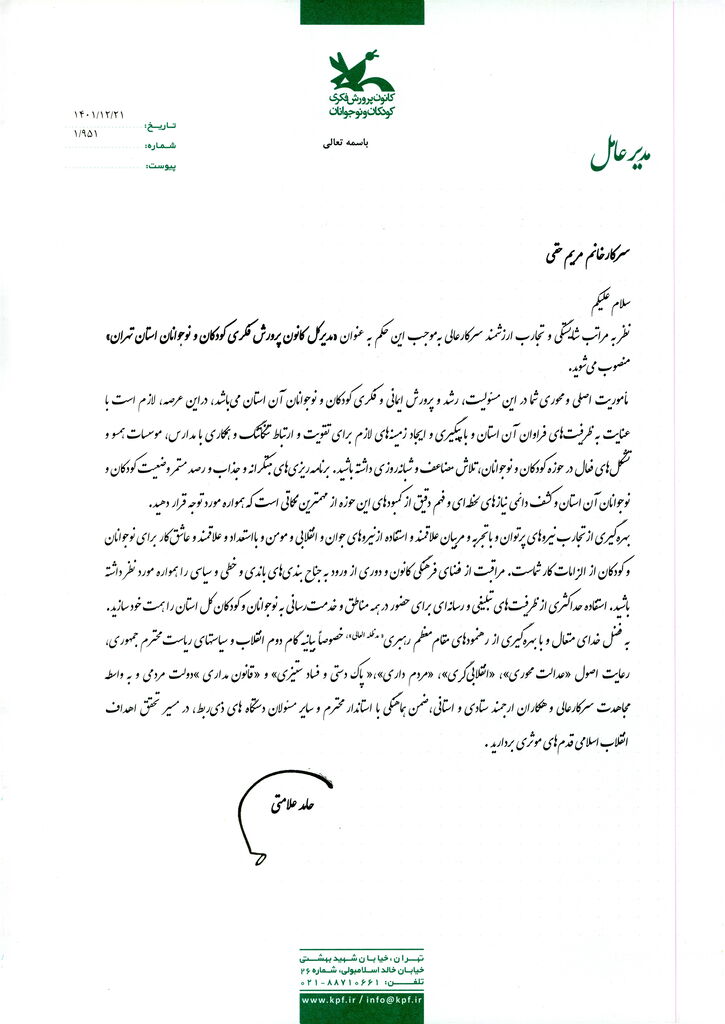 کانون پرورش فکری
کودکان و نوجوانان
باسمه تعالی
مدیر عامل
تاریخ: ۱۴۰۱/۱۲/۲۱
شماره: ۱/۹۵۱
پیوست:
سرکار خانم مریم حقی
سلام علیکم
نظر به مراتب شایستگی و تجارب ارزشمند سرکارعالی به‌موجب این حکم به عنوان «مدیرکل کانون پرورش فکری کودکان و نوجوانان استان تهران»
منصوب می‌شوید.
مأموریت اصلی و محوری شما در این مسئولیت، رشد و پرورش ایمانی و فکری کودکان و نوجوانان آن استان می‌باشد، دراین عرصه، لازم است با
عنایت به ظرفیت‌های فراوان آن استان و با پیگیری و ایجاد زمینه‌های لازم برای تقویت و ارتباط تنگاتنگ و همکاری با مدارس، موسسات همسو و
تشکل‌های فعال در حوزه کودکان و نوجوانان، تلاش مضاعف و شبانه‌روزی داشته باشید. برنامه‌ریزی‌های مبتکرانه و جذاب و رصد مستمر وضعیت کودکان و
نوجوانان آن استان و کشف دائمی نیازهای لحظه‌ای و فهم دقیق از کمبودهای این حوزه از مهمترین نکاتی است که همواره مورد توجه قرار دهید.
بهره‌گیری از تجارب نیروهای پرتوان و باتجربه و مربیان علاقمند و استفاده از نیروهای جوان و انقلابی و مومن و بااستعداد و علاقمند و عاشق کار برای نوجوانان
و کودکان از الزامات کار شماست. مراقبت از فضای فرهنگی کانون و دوری از ورود به جناح بندی‌های باندی و خطی و سیاسی را همواره مورد نظر داشته
باشید. استفاده حداکثری از ظرفیت‌های تبلیغی و رسانه‌ای برای حضور در همه مناطق و خدمت‌رسانی به نوجوانان و کودکان کل استان را همت خود سازید.
به فضل خدای متعال و با بهره‌گیری از رهنمودهای مقام معظم رهبری«مدظله العالی»، خصوصاً بیانیه گام دوم انقلاب و سیاستهای ریاست محترم جمهوری،
رعایت اصول «عدالت محوری»، «انقلابی‌گری»، «مردم داری»،« پاک دستی و فساد ستیزی» و «قانون مداری »دولت مردمی و به واسطه
مجاهدت سرکارعالی و همکاران ارجمند ستادی و استانی،ضمن هماهنگی با استاندار محترم و سایر مسئولان دستگاه های ذی‌ربط، در مسیر تحقق اهداف
انقلاب اسلامی قدم‌های موثری بردارید .
حامد علامتی
تهران، خیابان شهید بهشتی
خیابان خالد اسلامبولی، شماره ۲۶
تلفن: ۰۲۱-۸۸۷۱۰۶۶۱
www.kpf.ir / info@kpf.ir